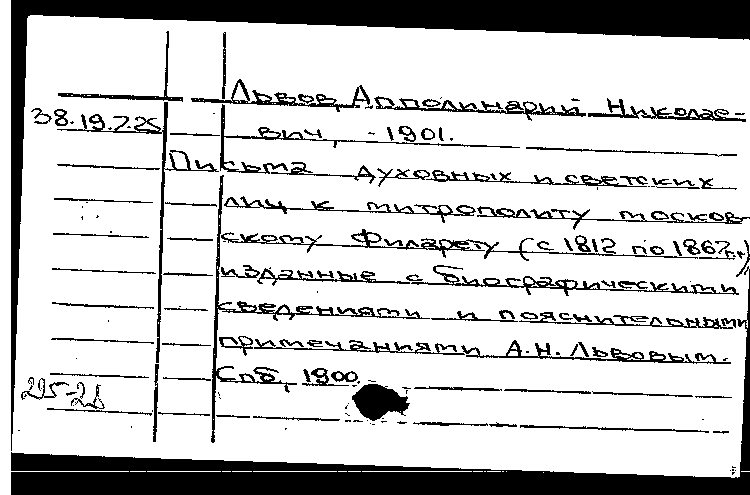 Львов, Апполинарий Николае-
38.19.7.25
вич, -1901.
Письма духовных и светских
лиц к митрополиту москов-
скому Филарету (с 1812 по 1867 гг.)
изданные с биографическими
сведениями и пояснительными
примечаниями А.Н. Львовым.
Спб, 1900.
295-28